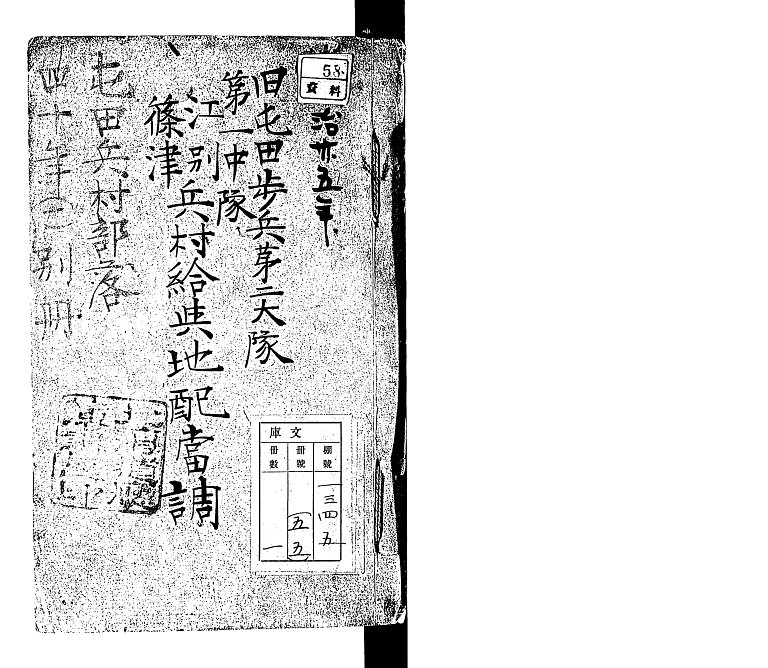 58
資料
治廿五年
旧屯田歩兵第三大隊
第一中隊
江別兵村給與地配當調
篠津
屯田兵村部落
四十年
別冊
文庫
棚號 一三四五
冊號 五五
冊數 一